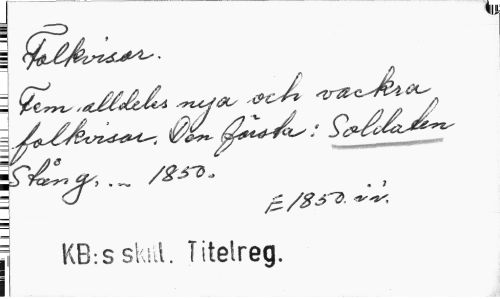 Folkvisor.
Fem alldeles nya och vackra
folkvisor. Den första: Soldaten
Stång. ... 1850.
E 1850. v.v.
KB:s skill. Titelreg.